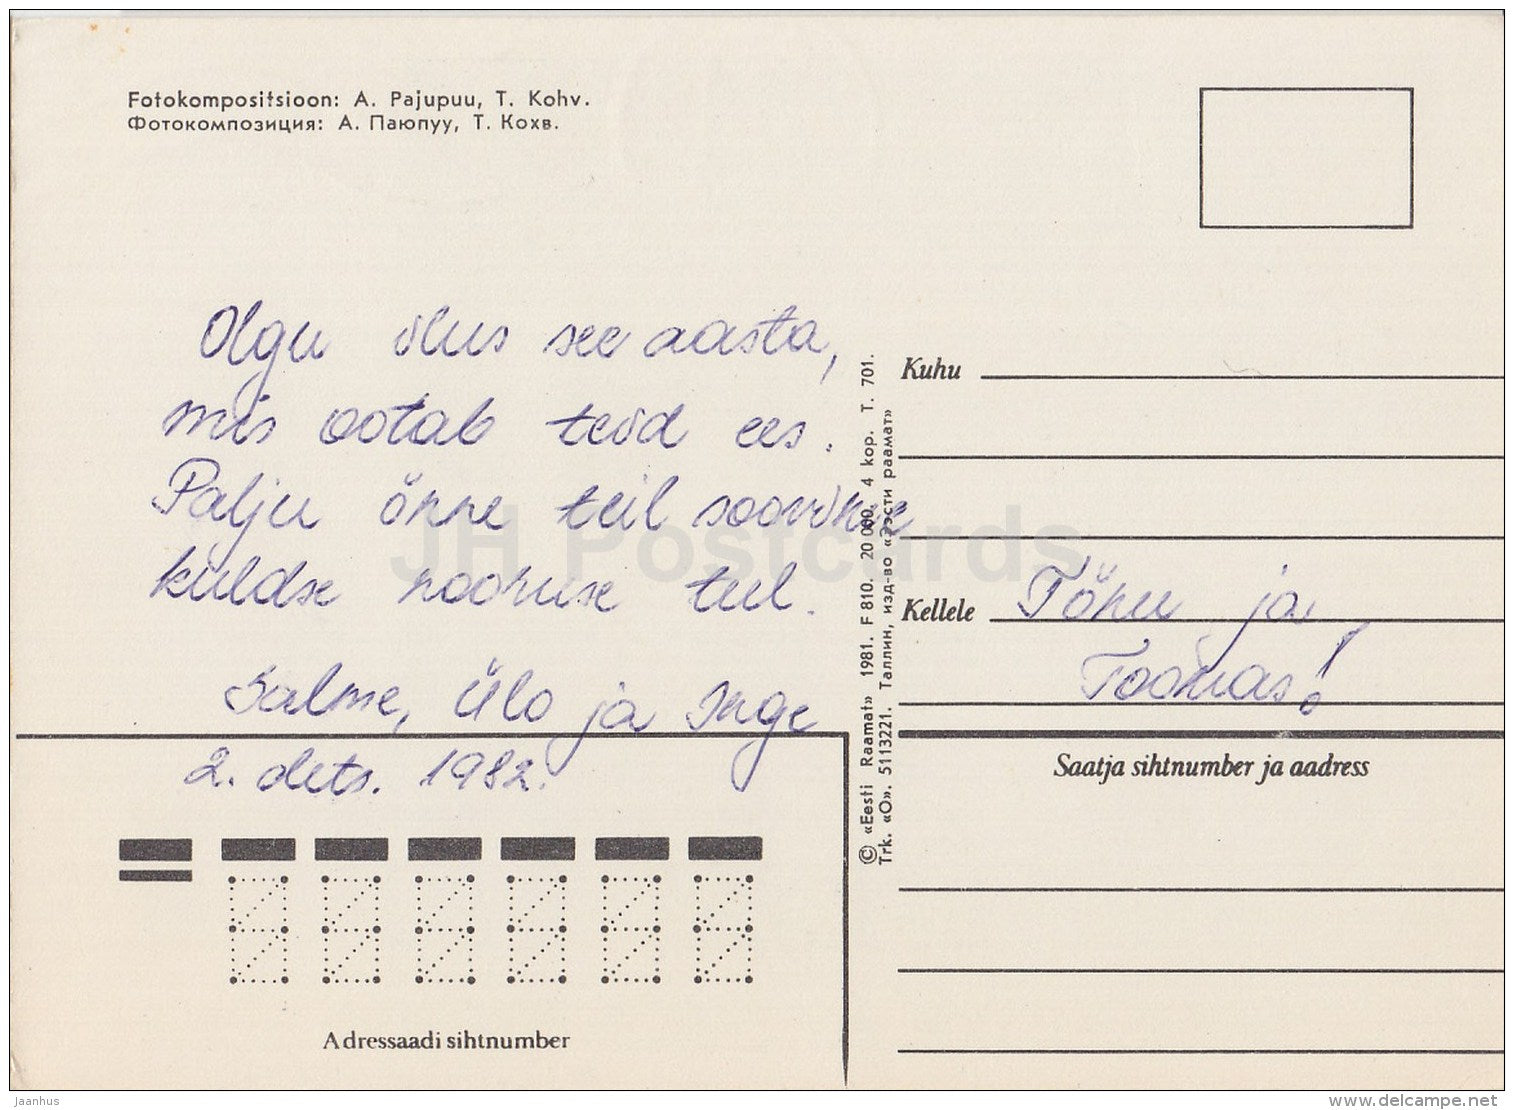 Fotokompositsioon: A. Pajupuu, T. Kohv.
Фотокомпозиция: А. Паюпуу, Т. Кохв.
Olgu ilus see aasta,
mis ootab teid ees.
Palju õnne teil soovime
kuldse nooruse teel.
Salme, Ülo ja Inge
2. dets. 1982.
Adressaadi sihtnumber
© «Eesti Raamat» 1981. F 810. 20 000. 4 kop. T. 701.
Trk. «O». 5113221. Таллин, изд-во «Ээсти раамат»
Kuhu
Kellele Tõnu ja
Toomas!
Saatja sihtnumber ja aadress
JH Postcards
Jaanhus
www.delcampe.net